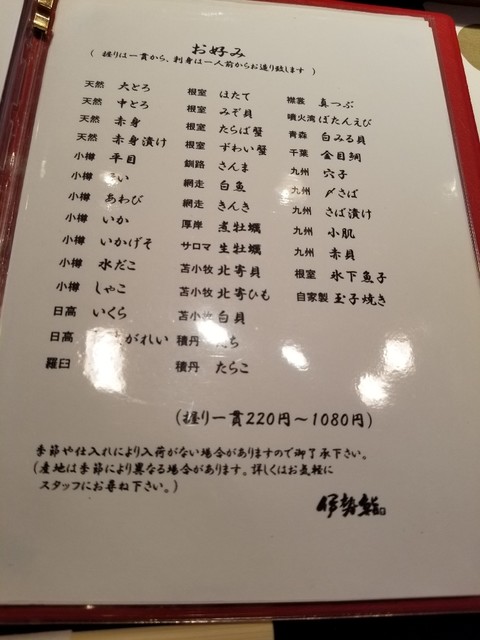 お好み
( 握りは一貫から、刺身は一人前からお造り致します )
天然 大とろ
天然 中とろ
天然 赤身
天然 赤身漬け
小樽 平目
小樽
小樽 あわび
小樽 いか
小樽 いかげそ
小樽 水だこ
小樽 しゃこ
日高 いくら
日高 がれい
羅臼
根室 ほたて
根室 みぞ貝
根室 たらば蟹
根室 ずわい蟹
釧路 さんま
網走 白魚
網走 きんき
厚岸 煮牡蠣
サロマ 生牡蠣
苫小牧 北寄貝
苫小牧 北寄ひも
苫小牧 白貝
積丹 たち
積丹 たらこ
襟裳 真つぶ
噴火湾 ぼたんえび
青森 白みる貝
千葉 金目鯛
九州 穴子
九州 〆さば
九州 さば漬け
九州 小肌
九州 赤貝
根室 氷下魚子
自家製 玉子焼き
(握り一貫220円~1080円)
季節や仕入れにより入荷がない場合がありますので御了承下さい。
(産地は季節により異なる場合があります。詳しくはお気軽に
スタッフにお尋ね下さい。)
伊勢鮨